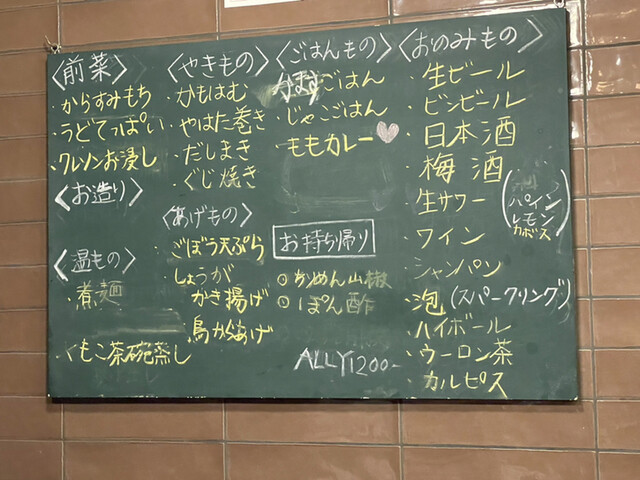 〈前菜〉
・からすみもち
・うどてっぽい
・クレソンお浸し
〈お造り〉
〈温もの〉
・煮麺
・くもこ茶碗蒸し
〈やきもの〉
・かもはむ
・やはた巻き
・だしまき
・ぐじ焼き
〈あげもの〉
・ごぼう天ぷら
・しょうが
かき揚げ
・鳥からあげ
〈ごはんもの〉
ごはん
・じゃこごはん
・ももカレー
お持ち帰り
◎ちりめん山椒
◎ぽん酢
ALL ¥1200-
〈おのみもの〉
・生ビール
・ビンビール
・日本酒
・梅酒
・生サワー
(パイン
レモン
カボス)
・ワイン
・シャンパン
・泡(スパークリング)
・ハイボール
・ウーロン茶
・カルピス